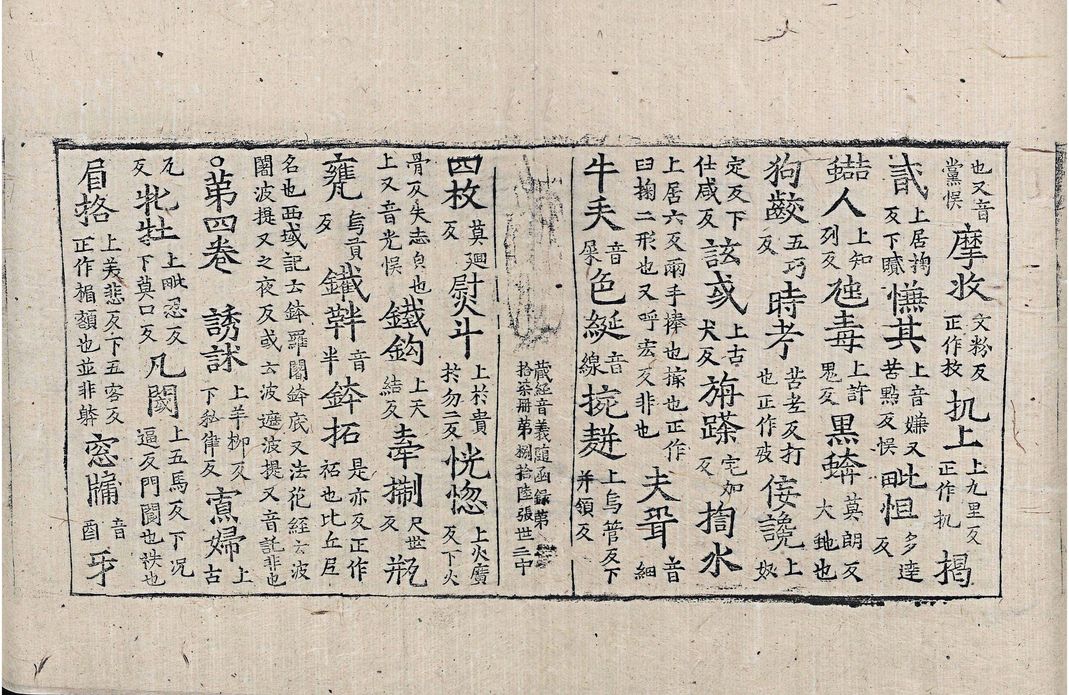 也又音黨悮 摩收 文粉反正作抆 扤上 上九里反正作机 揭
貳 上居掬反下贓 憮其 上音嫌又苦點反悮 毗怛 多達反
人 上知列反 虺毒 上許鬼反 黑蟒 莫朗反大虵也
狗齩 五巧反 時考 苦老反打也正作攷 侫讒 上奴
定反下仕咸反 詃或 上古犬反 旃蹂 宅加反 掬水
上居六反兩手捧也掬也正作臼掬二形也又呼宏反非也 夫壻 音細
牛 音屎 色綖 音線 捥 上烏管反下并領反
藏經音義隨函録第
拾柒冊第捌拾陸張世三中
四枚 莫廻反 熨斗 上於貴於勿二反 恍惚 上火廣反下火
骨反失志皃也上又音光悮 鐵鉤 上天結反 牽掣 尺世反 瓶
甕 烏貢反 鐵靽 音半 鉢拓 是亦反正作祏也比丘尼
名也西域記云鉢羅闍鉢底又法花經云波闍波提又之夜反或云波遮波提又音託非也
第四卷 誘訹 上羊柳反下私律反 寡婦 上古
瓦反 牝牡 上毗忍反下莫口反 瓦 上五馬反下況逼反門閫也悮也
眉挌 上美悲反下五客反正作楣額也並非躰 窓牖 音酉 乎